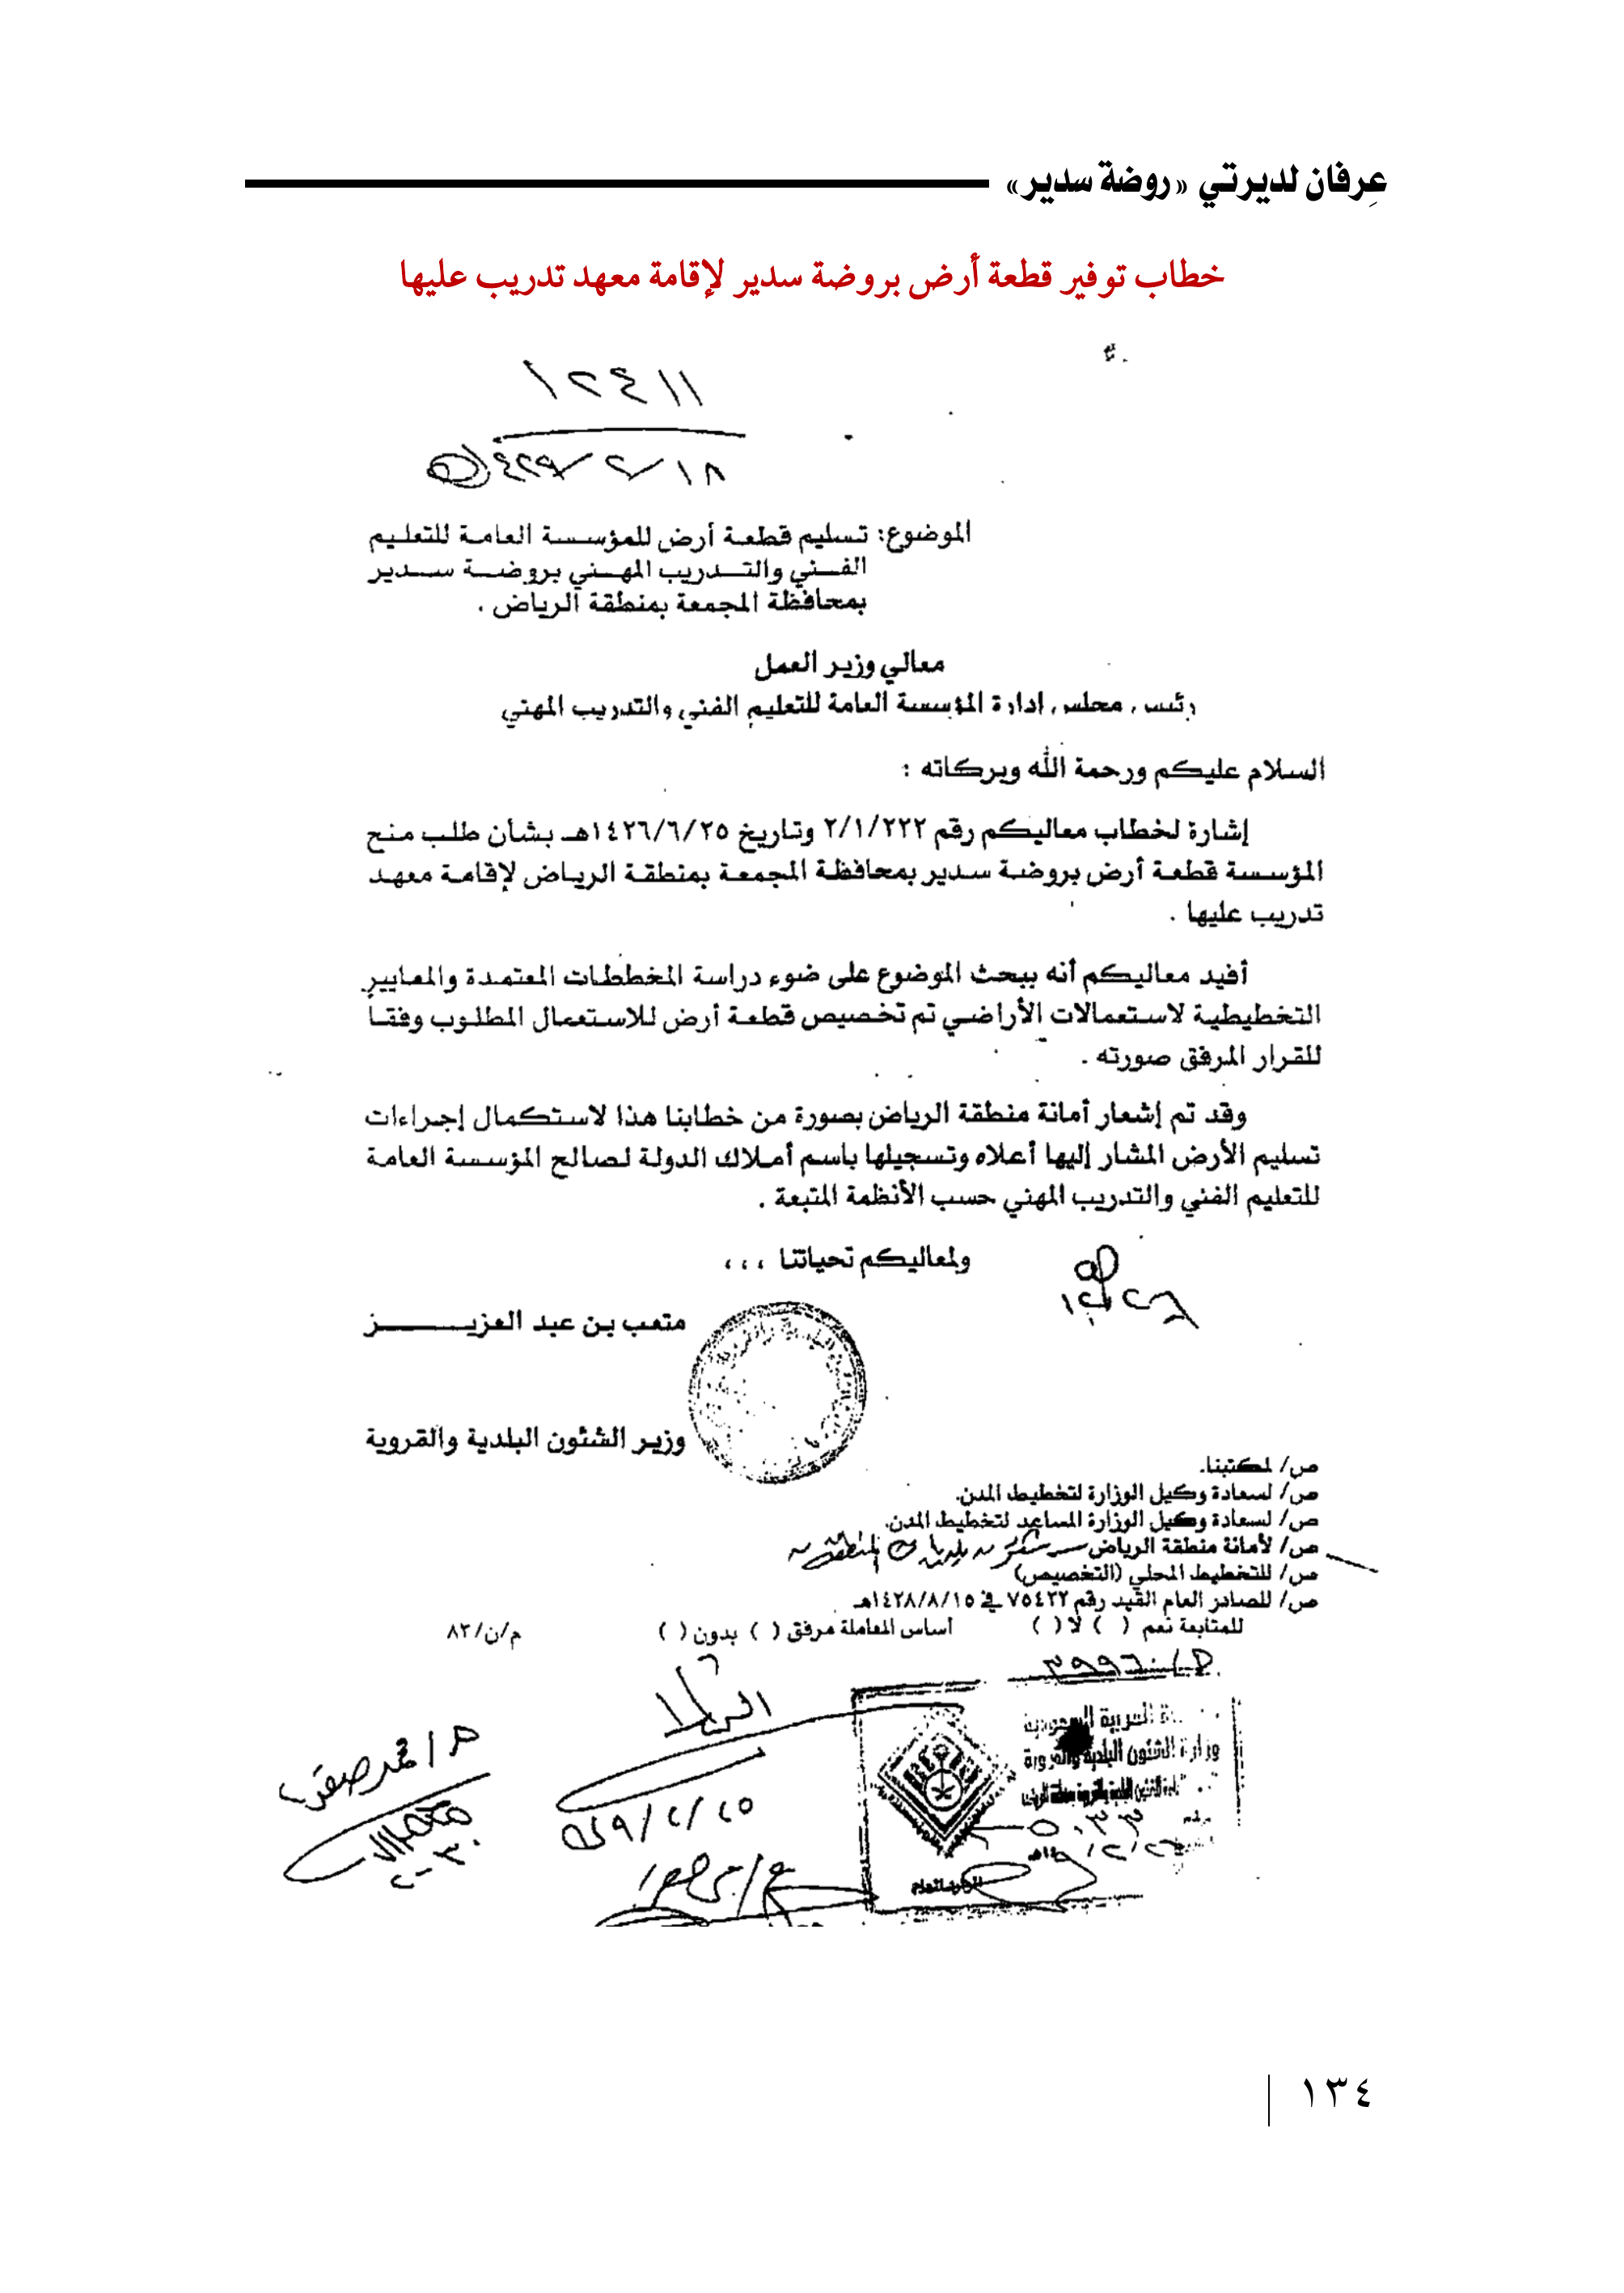 عِرفان لديرتي «روضة سدير»
خطاب توفير قطعة أرض بروضة سدير لإقامة معهد تدريب عليها
١٢٤١١
الموضوع: تسليم قطعة أرض للمؤسسة العامة للتعليم
الفني والتدريب المهني بروضة سدير
بمحافظة المجمعة بمنطقة الرياض .
معالي وزير العمل
رئيس مجلس إدارة المؤسسة العامة للتعليم الفني والتدريب المهني
السلام عليكم ورحمة الله وبركاته :
إشارة لخطاب معاليكم رقم ٢/١/٢٢٢ وتاريخ ١٤٢٦/٦/٢٥هـ بشأن طلب منح
المؤسسة قطعة أرض بروضة سدير بمحافظة المجمعة بمنطقة الرياض لإقامة معهد
تدريب عليها .
أفيد معاليكم أنه ببحث الموضوع على ضوء دراسة المخططات المعتمدة والمعايير
التخطيطية لاستعمالات الأراضي تم تخصيص قطعة أرض للاستعمال المطلوب وفقا
للقرار المرفق صورته .
وقد تم إشعار أمانة منطقة الرياض بصورة من خطابنا هذا لاستكمال إجراءات
تسليم الأرض المشار إليها أعلاه وتسجيلها باسم أملاك الدولة لصالح المؤسسة العامة
للتعليم الفني والتدريب المهني حسب الأنظمة المتبعة .
ولمعاليكم تحياتنا ،،،
متعب بن عبد العزيـــــز
وزير الشئون البلدية والقروية
ص/ لمكتبنا.
ص/ لسعادة وكيل الوزارة لتخطيط المدن.
ص/ لسعادة وكيل الوزارة المساعد لتخطيط المدن.
ص/ لأمانة منطقة الرياض
ص/ للتخطيط المحلي (التخصيص)
ص/ للصادر العام القيد رقم ٧٥٤٢٢ في ١٤٢٨/٨/١٥هـ
للمتابعة نعم ( ) لا ( ) أساس المعاملة مرفق ( ) بدون ( ) م/ن/٨٣
العربية السعودية
وزارة الشئون البلدية والقروية
١٣٤